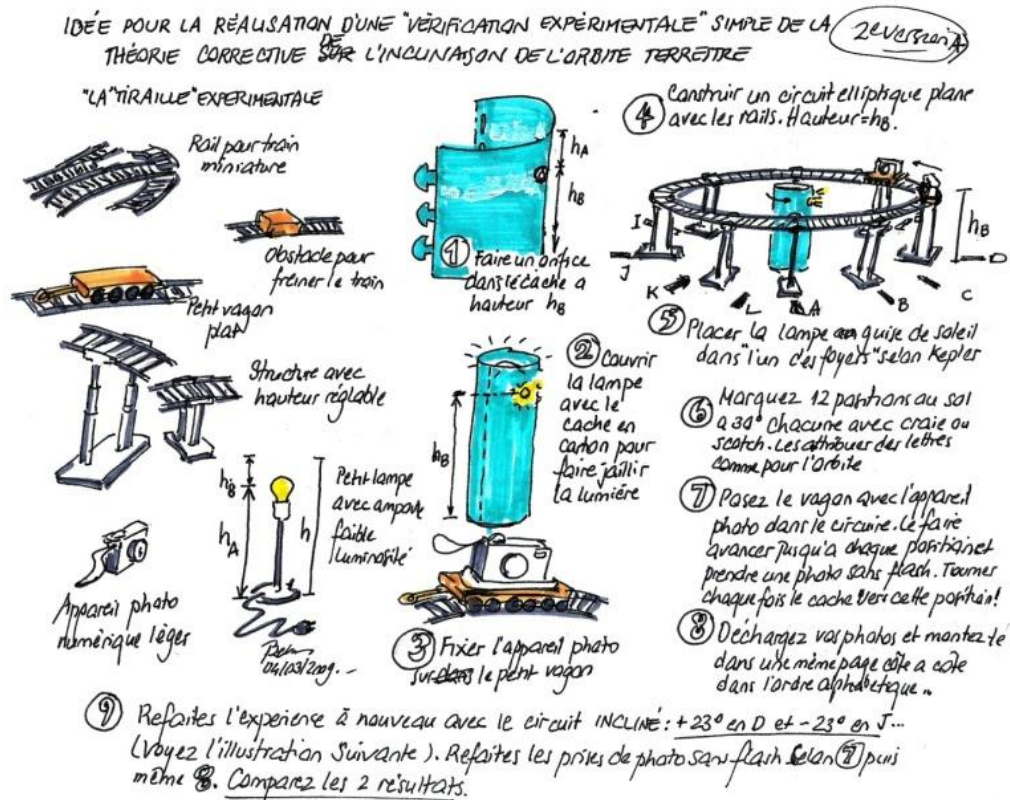 IDÉE POUR LA RÉALISATION D'UNE "VÉRIFICATION EXPÉRIMENTALE" SIMPLE DE LA
THÉORIE CORRECTIVE DE L'INCLINAISON DE L'ORBITE TERRETTRE
2e version A
"LA "TIRAILLE" EXPERIMENTALE
Rail pour train
miniature
Obstacle pour
freiner le train
Petit vagon
plat
Structure avec
hauteur réglable
hB
hA
h
Petit lampe
avec ampoule
faible
luminosité
Appareil photo
numérique léger
04/03/2009.-
hA
hB
① Faire un orifice
dans le cache a
hauteur hB
hB
② Couvrir
la lampe
avec le
cache en
carton pour
faire jaillir
la lumière
③ Fixer l'appareil photo
sur le petit vagon
④ Construir un circuit elliptique plane
avec les rails. Hauteur=hB.
hB
I
J
K
L
A
B
C
D
⑤ Placer la lampe guise de soleil
dans "l'un des foyers" selon Kepler
⑥ Marquez 12 positions au sol
a 30° chacune avec craie ou
scotch. Les attribuer des lettres
comme pour l'orbite
⑦ Posez le vagon avec l'appareil
photo dans le circuire. Le faire
avancer jusqu'a chaque position et
prendre une photo sans flash. Tourner
chaque fois le cache vers cette position!
⑧ Déchargez vos photos et montez-le
dans une même page côte a côte
dans l'ordre alphabetique...
⑨ Refaites l'experience à nouveau avec le circuit INCLINÉ: +23° en D et -23° en J...
(Voyez l'illustration suivante). Refaites les prises de photo sans flash selon ⑦ puis
même ⑧. Comparez les 2 résultats.